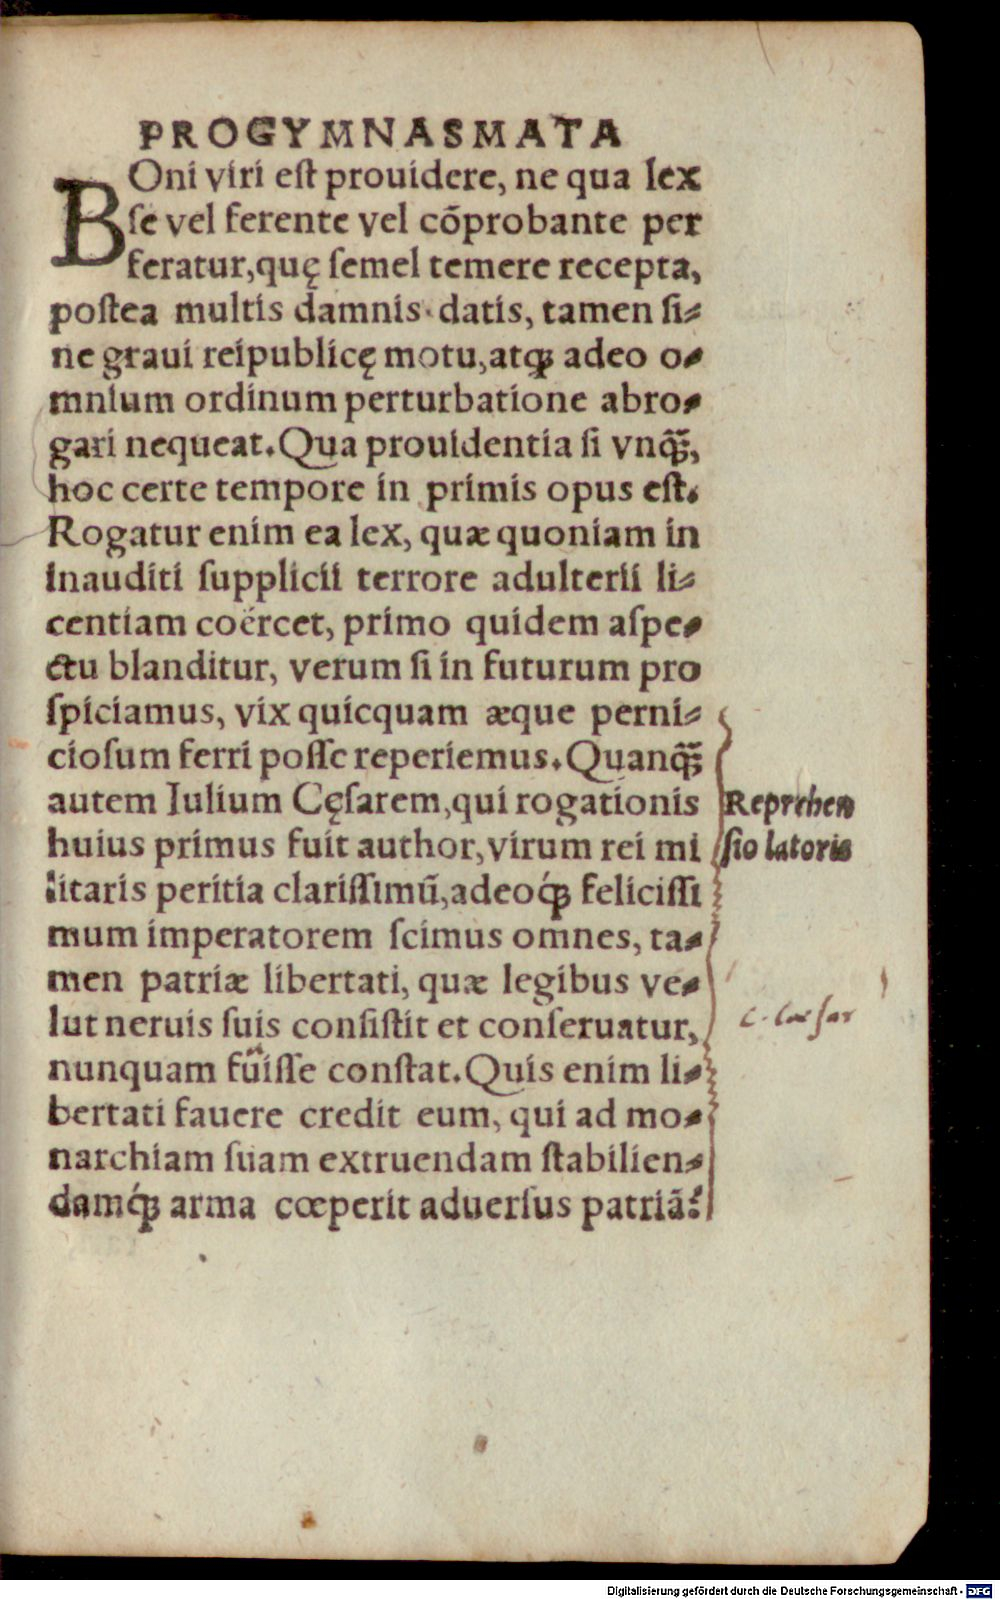 PROGYMNASMATA
BOni viri eſt prouidere, ne qua lex
ſe vel ferente vel cõprobante per
feratur,quę ſemel temere recepta,
poſtea multis damnis datis, tamen ſi⸗
ne graui reipublicę motu,atqꝫ adeo o⸗
mnium ordinum perturbatione abro⸗
gari nequeat. Qua prouidentia ſi vnqꝫ̃,
hoc certe tempore in primis opus eſt.
Rogatur enim ea lex, quæ quoniam in
inauditi ſupplicii terrore adulterii li⸗
centiam coërcet, primo quidem aſpe⸗
ctu blanditur, verum ſi in futurum pro
ſpiciamus, vix quicquam æque perni⸗
cioſum ferri poſſe reperiemus. Quanqꝫ̃
autem Iulium Cęſarem,qui rogationis
huius primus fuit author,virum rei mi
litaris peritia clariſſimũ,adeoqꝫ́ feliciſſi
mum imperatorem ſcimus omnes, ta⸗
men patriæ libertati, quæ legibus ve⸗
lut neruis ſuis conſiſtit et conſeruatur,
nunquam fuiſſe conſtat. Quis enim li⸗
bertati fauere credit eum, qui ad mo⸗
narchiam ſuam extruendam ſtabilien⸗
damqꝫ́ arma cœperit aduerſus patriã?
Reprehen
ſio latoris
C. Caeſar
Digitalisierung gefördert durch die Deutsche Forschungsgemeinschaft - DFG